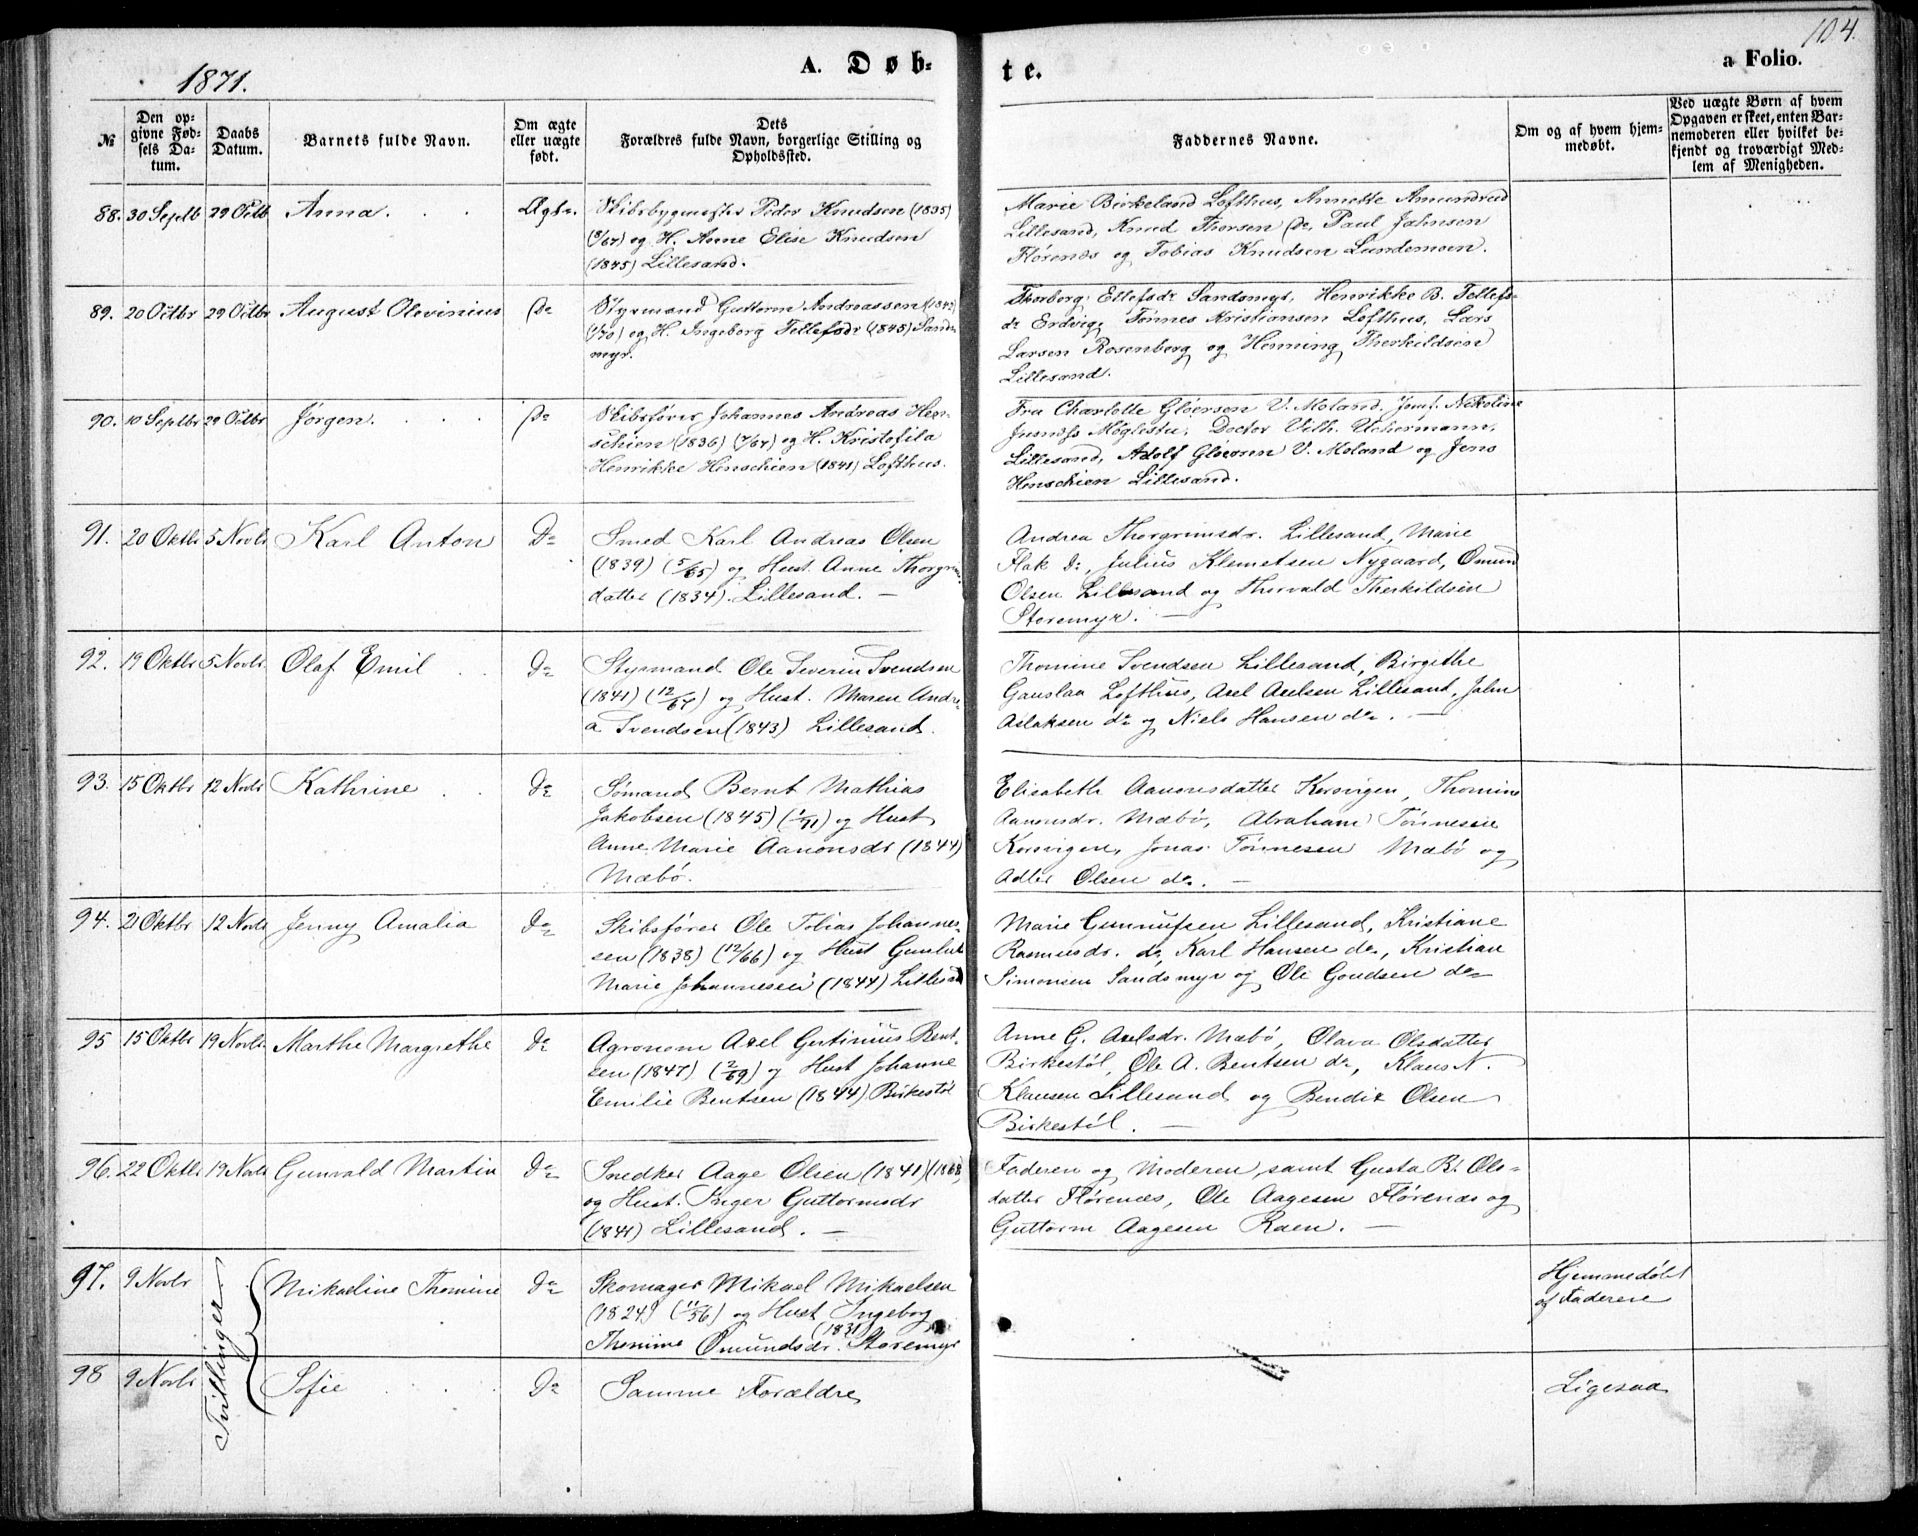 104.
1871.
A. Døb-
te.
a Folio.
№
Den op-
givne Fød-
sels Da-
tum.
Daabs
Datum.
Barnets fulde Navn.
Om ægte
eller uægte
født.
Dets
Forældres fulde Navn, borgerlige Stilling og
Opholdssted.
Faddernes Navne.
Om og af hvem hjem-
medøbt.
Ved uægte Børn af hvem
Opgaven er skeet, enten Bar-
nemoderen eller hvilket be-
kjendt og troværdigt Med-
lem af Menigheden.
88. 30 Septb 29 Octb Anna . . Ægte.
Skibsbygmester Peder Knudsen (1835)
(8/67) og H. Anne Elise Knudsen
(1845) Lillesand.
Marie Birkeland Lofthus, Annette Amundrud
Lillesand, Knud Thorsen do, Paul Jahnsen
Flørenæs og Tobias Knudsen Lundemoen.
89. 20 Octbr 29 Octbr August Olevinius Do
Styrmand Guttorm Andreassen (1842)
(1/70) og H. Ingeborg Tellefsdr (1845) Sands-
myr.
Thorborg Ellefsdr Sandsmyr, Henrikke B. Tellefs-
dr Erdvig, Tønnes Kristiansen Lofthus, Lars
Larsen Rosenberg og Henning Therkildsen
Lillesand.
90. 10 Septbr 29 Octbr Jørgen. . . . Do
Skibsfører Johannes Andreas Hen-
schien (1836) (7/67) og H. Kristofila
Henrikke Henschien (1841) Lofthus.
Fru Charlotte Gløersen V. Moland. Jomf. Nikoline
Møglestu, Doctor Vilh. Uchermann,
Lillesand, Adolf Gløersen V. Moland og Jens
Henschien Lillesand.
91. 20 Oktbr 5 Novbr Karl Anton Do
Smed Karl Andreas Olsen
(1839) (5/65) og Hust. Anne Thorgrims-
datter (1834). Lillesand. —
Andrea Thorgrimsdr. Lillesand, Marie
Flak do, Julius Klemetsen Nygaard, Ømund
Olsen Lillesand og Thorvald Therkildsen
Storemyr. —
92. 19 Oktbr 5 Novbr. Olaf Emil . . Do
Styrmand Ole Severin Svendsen
(1841) (12/67) og Hust. Maren Andre-
a Svendsen (1843) Lillesand.
Thomine Svendsen Lillesand, Birgithe
Gauslaa Lofthus, Axel Axelsen Lillesand, John
Aslaksen do og Niels Hansen do. —
93. 15 Oktbr 12 Novbr Kathrine . . Do
Sømand Bernt Mathias
Jakobsen (1845) (1/71) og Hust
Anne Marie Aanonsdr (1844)
Mæbø.
Elisabeth Aanonsdatter Korsvigen, Thomine
Aanonsdr. Mæbø, Abraham Tønnesen
Korsvigen, Jonas Tønnesen Mæbø og
Adler Olsen do. —
94. 21 Oktbr 12 Novbr Jenny Amalia Do
Skibsfører Ole Tobias Johannes-
sen (1838) (12/66) og Hust
Marie Johannesen (1844) Lillesand
Marie Gunnufsen Lillesand, Kristiane
Rasmusdr. do, Karl Hansen do, Kristian
Simonsen Sandsmyr og Ole Goudsen do
95 15 Oktbr 19 Novbr. Marthe Margrethe Do
Agronom Axel Gertinius Bent-
sen (1847) (2/69) og Hust Johanne
Emilie Bentsen (1844) Birkestøl
Anne G. Axelsdr. Mæbø, Olava Olsdatter
Birkestøl, Ole A. Bentsen do, Klaus N.
Klausen Lillesand og Bendix Olsen
Birkestøl. —
96. 22 Oktbr 19 Novbr Gunvald Martin Do
Snedker Aage Olsen (1841) (1868)
og Hust. Inger Guttormsdr
(1841) Lillesand. —
Faderen og Moderen, samt Gusta B. Ols-
datter Flørenæs, Ole Aagesen Flørenæs og
Guttorm Aagesen Kaen. —
97. 9 Novbr Mikaeline Thomine Do
Skomager Mikael Mikaelsen
(1824) (11/56) og Hust Ingeborg
Thomine Ømundsdr. (1831) Storemyr
Hjemmedøbt
af Faderen
Tvillinger
98 9 Novbr Sofie . . . Do
Samme Forældre
Ligesaa